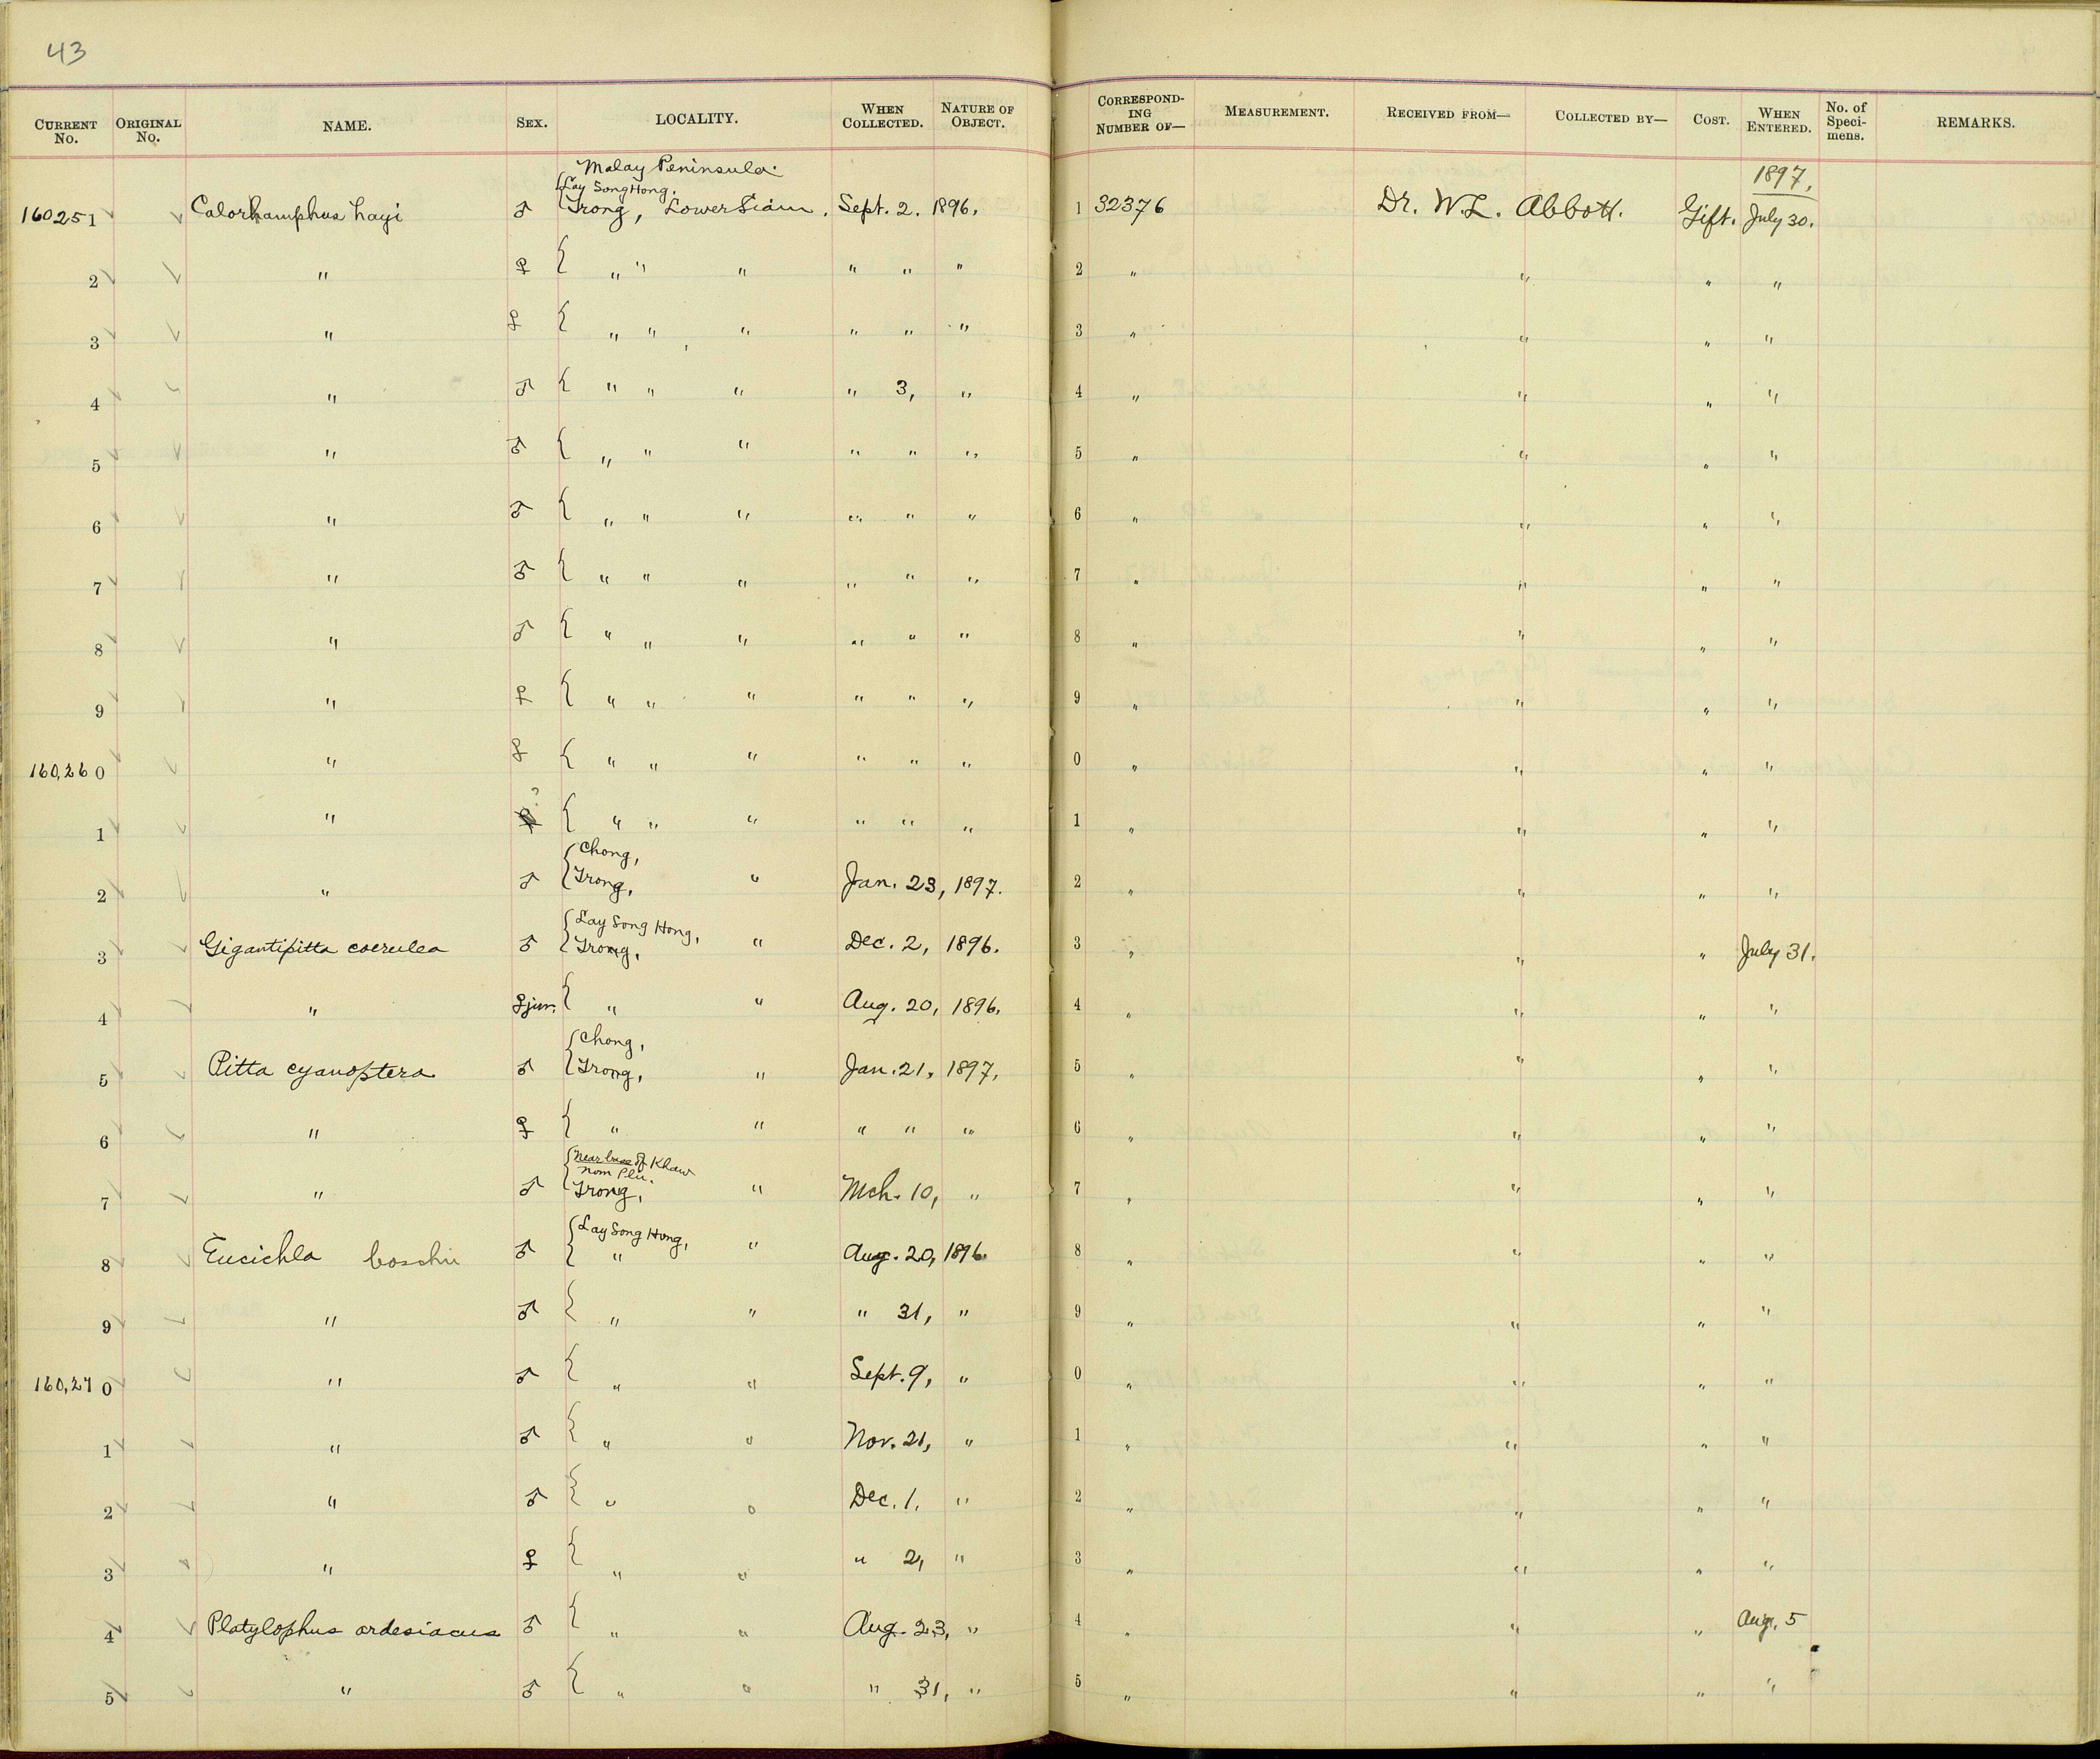 43
CURRENT No. ORIGINAL No. NAME. SEX. LOCALITY. WHEN COLLECTED. NATURE OF OBJECT. CORRESPONDING NUMBER OF— MEASUREMENT. RECEIVED FROM— COLLECTED BY— COST. WHEN ENTERED. No. of Specimens. REMARKS.
Malay Peninsula.
Lay Song Hong, 1897.
160251 Calorhamphus hayi ♂ Trong, Lower Siam. Sept. 2. 1896. 1 32376 Dr. W. L. Abbott. Gift. July 30.
2 " ♀ " " " " " " 2 " " " "
3 " ♀ " " " " " " 3 " " " "
4 " ♂ " " " " 3, " 4 " " " "
5 " ♂ " " " " " " 5 " " " "
6 " ♂ " " " " " " 6 " " " "
7 " ♂ " " " " " " 7 " " " "
8 " ♂ " " " " " " 8 " " " "
9 " ♀ " " " " " " 9 " " " "
160,260 " ♀ " " " " " " 0 " " " "
1 " ? " " " " " " 1 " " " "
Chong,
2 " ♂ Trong, " Jan. 23, 1897. 2 " " " "
Lay Song Hong,
3 Gigantipitta coerulea ♂ Trong, " Dec. 2, 1896. 3 " " " July 31.
4 " ♀ jun. " " Aug. 20, 1896. 4 " " " "
Chong,
5 Pitta cyanoptera ♂ Trong, " Jan. 21, 1897. 5 " " " "
6 " ♀ " " " " " 6 " " " "
Near base of Khaw
Nom Plu.
7 " ♂ Trong, " Mch. 10, " 7 " " " "
Lay Song Hong,
8 Eucichla boschii ♂ " " Aug. 20, 1896. 8 " " " "
9 " ♂ " " " 31, " 9 " " " "
160,270 " ♂ " " Sept. 9, " 0 " " " "
1 " ♂ " " Nov. 21, " 1 " " " "
2 " ♂ " " Dec. 1, " 2 " " " "
3 " ♀ " " " 2, " 3 " " " "
4 Platylophus ardesiacus ♂ " " Aug. 23, " 4 " " " Aug. 5
5 " ♂ " " " 31, " 5 " " " "